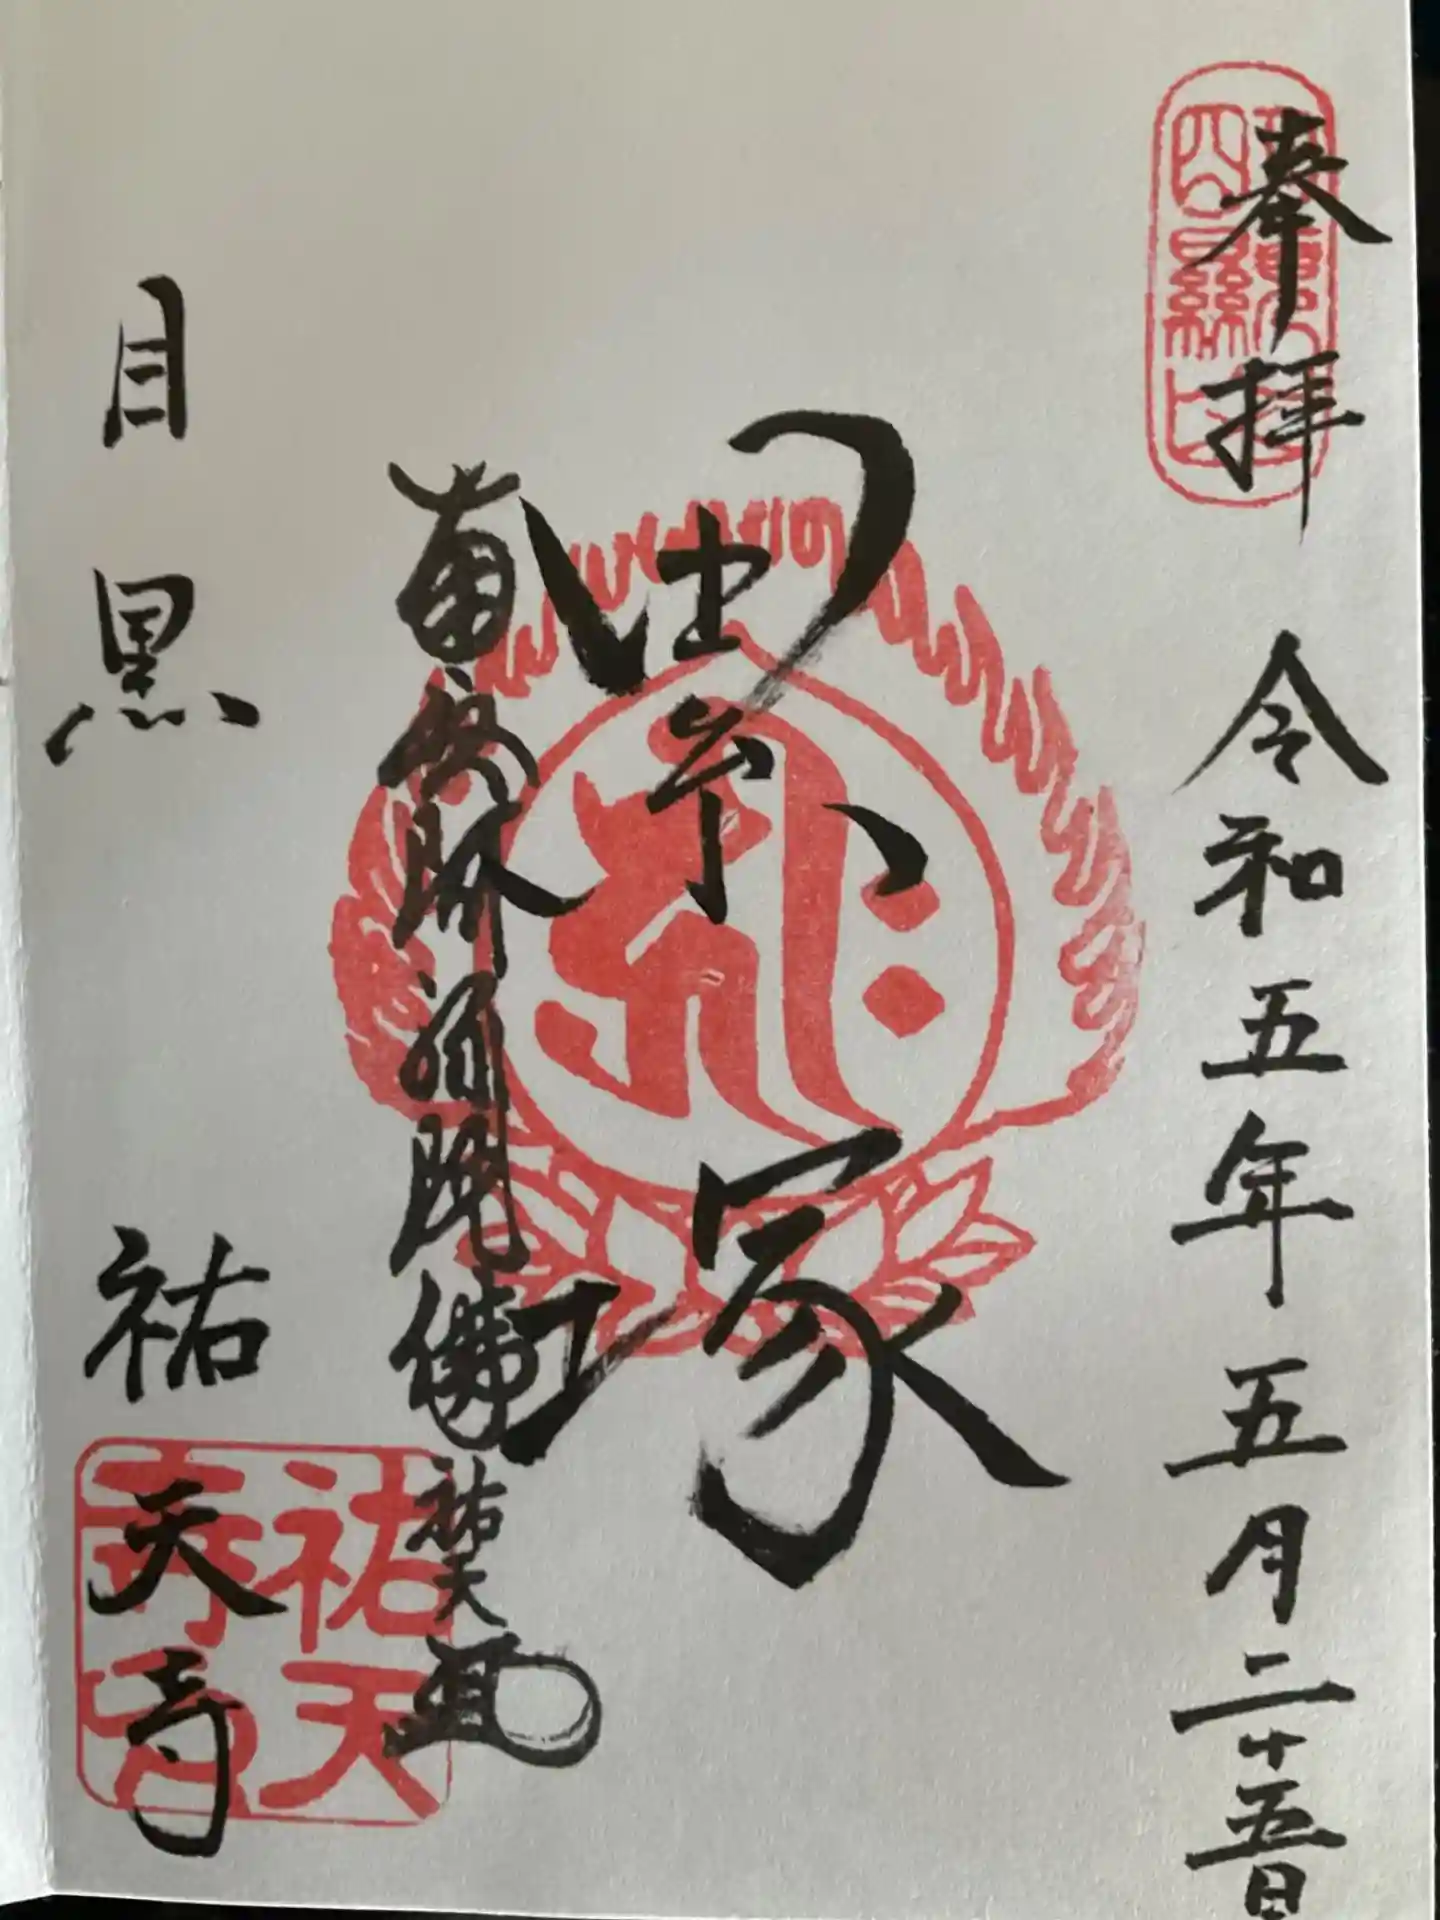 奉拝 令和五年五月二十五日
累塚
南無阿彌陀佛 祐天
目黒 祐天寺
祐天